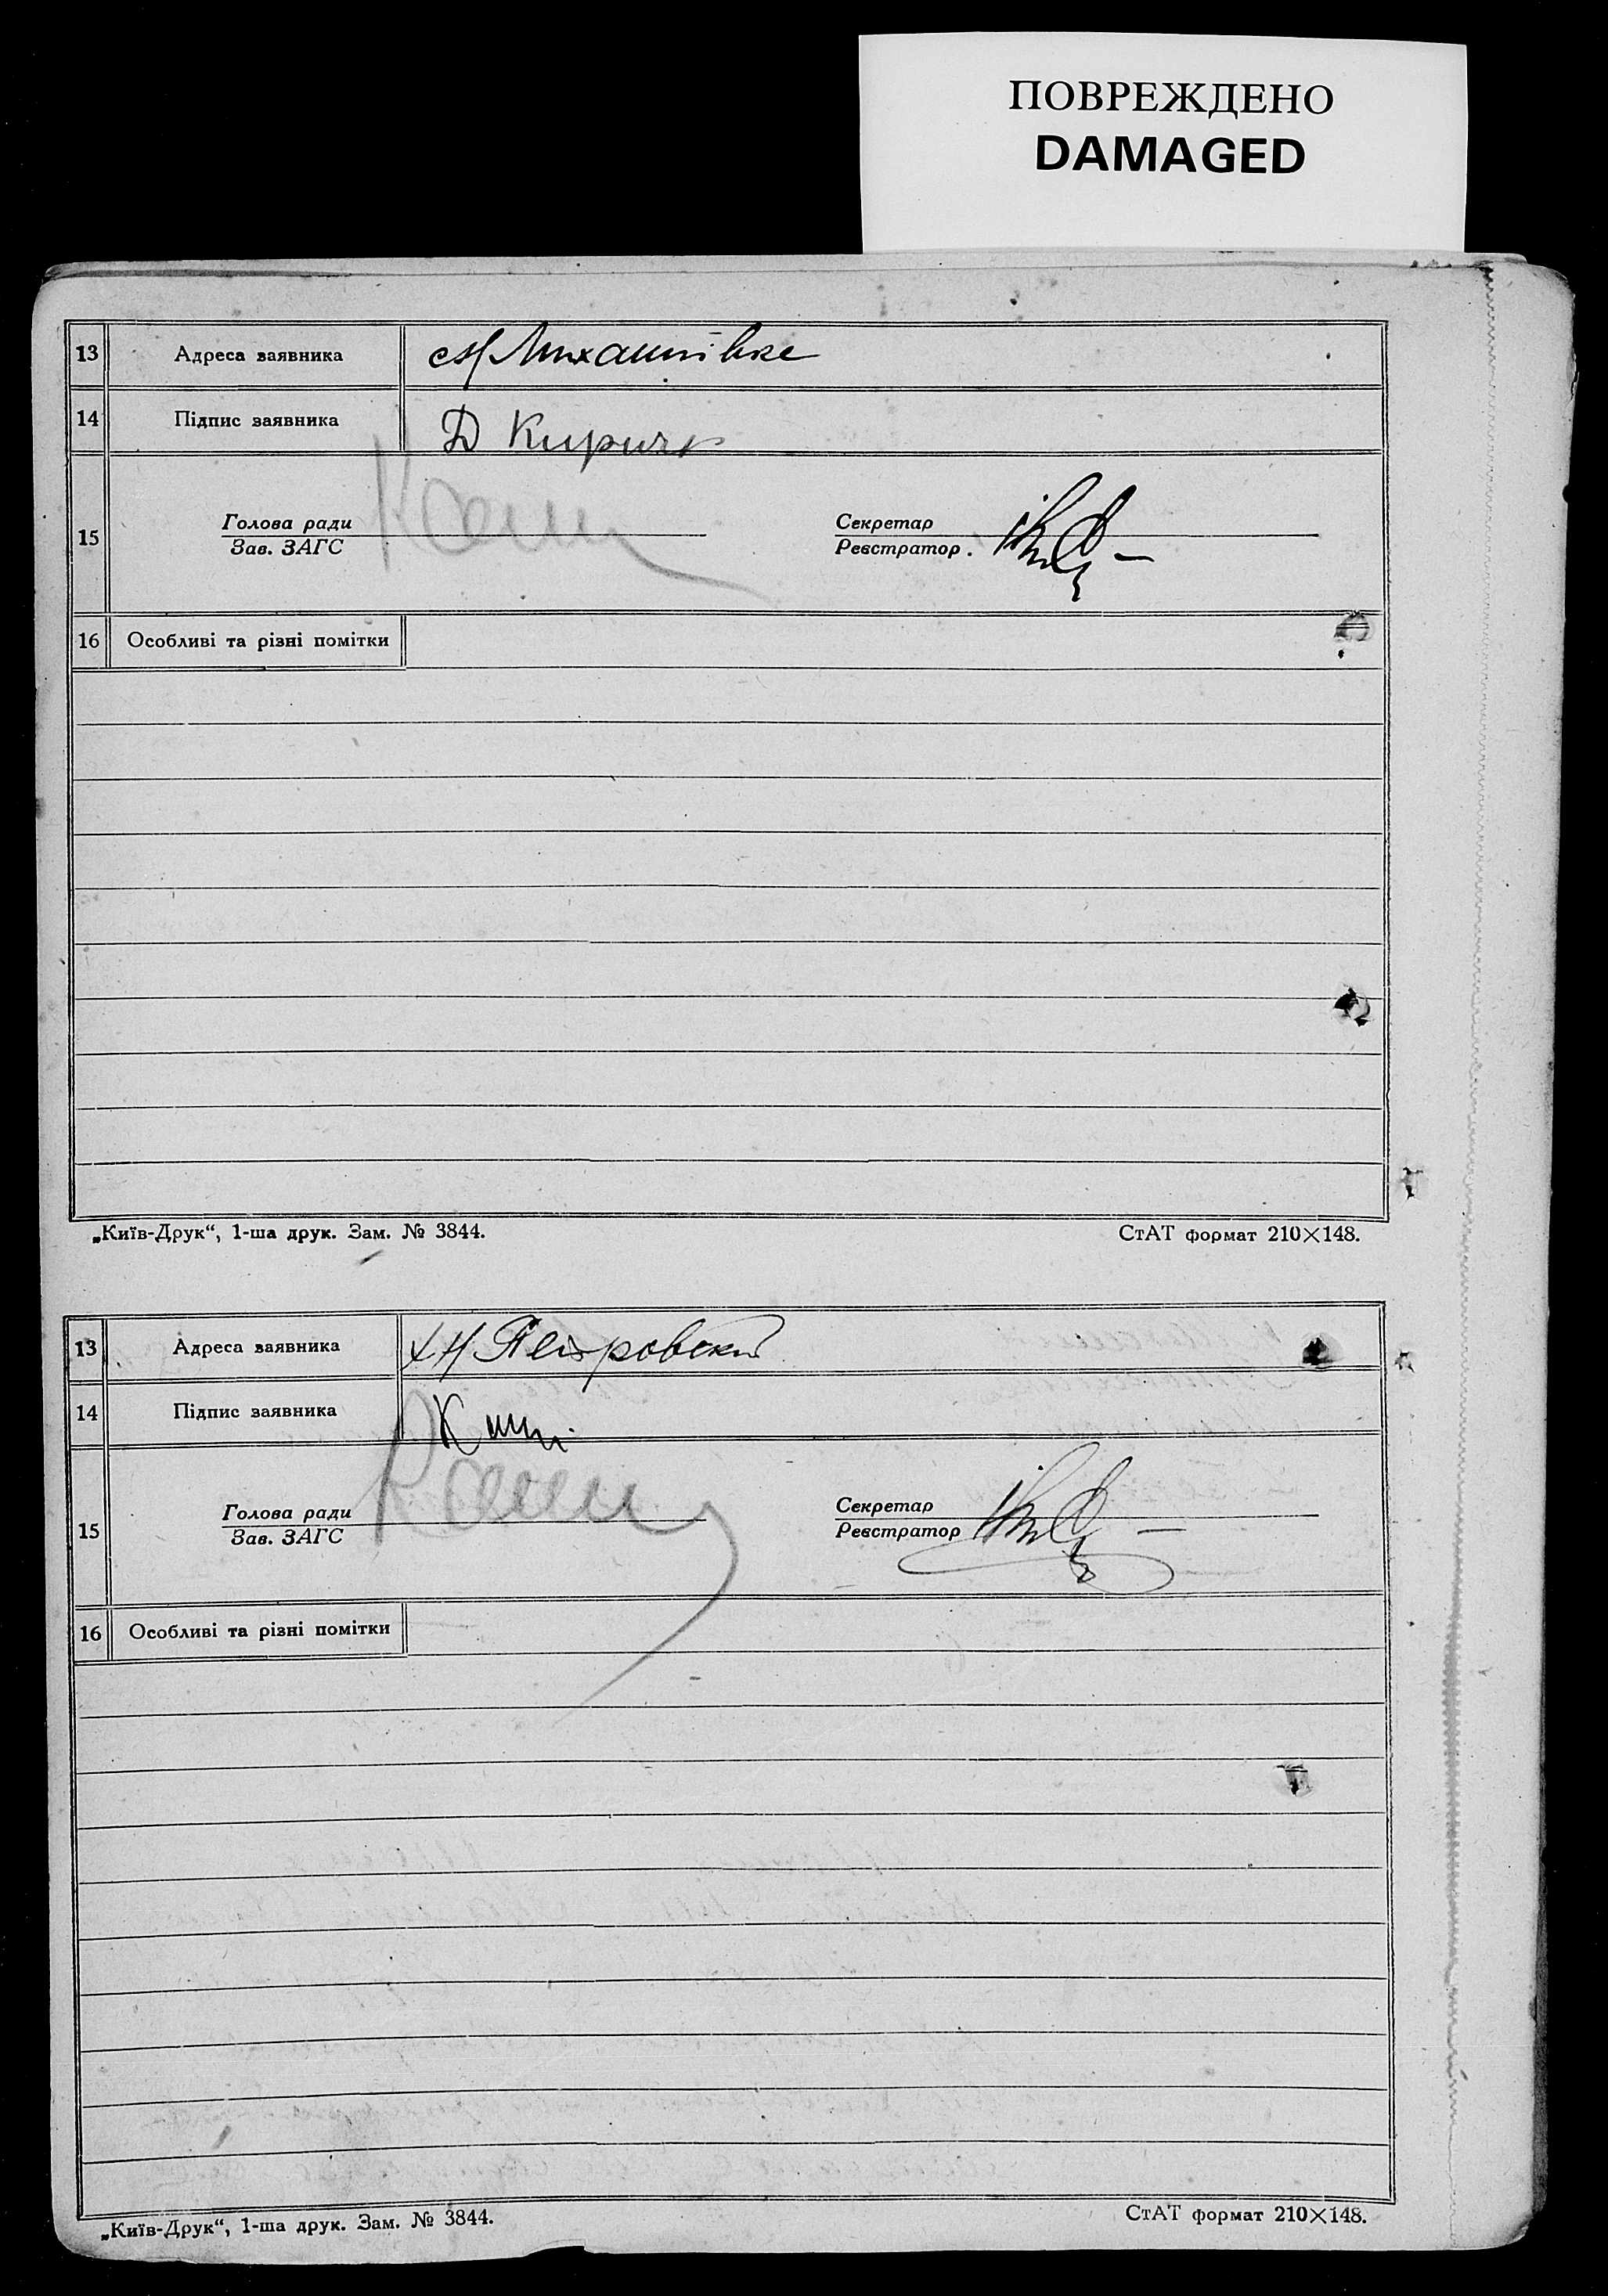 ПОВРЕЖДЕНО
DAMAGED
13 Адреса заявника с/ Михайлівка
14 Підпис заявника Д Кирич
15 Голова ради Секретар
Зав. ЗАГС Реєстратор
16 Особливі та різні помітки
„Київ-Друк“, 1-ша друк. Зам. № 3844. СтАТ формат 210×148.
13 Адреса заявника х/ Петровский
14 Підпис заявника
15 Голова ради Секретар
Зав. ЗАГС Реєстратор
16 Особливі та різні помітки
„Київ-Друк“, 1-ша друк. Зам. № 3844. СтАТ формат 210×148.